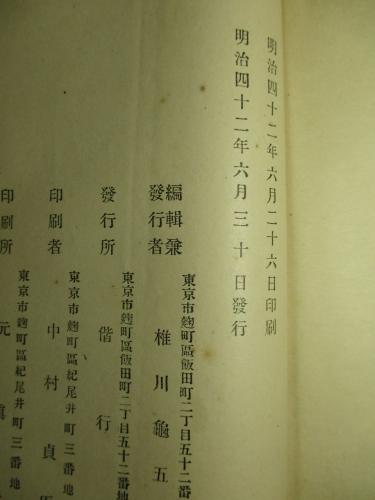 明治四十二年六月二十六日印刷
明治四十二年六月三十日發行
編輯兼
發行者
東京市麴町區飯田町二丁目五十二番地
椎川龜五
發行所
東京市麴町區飯田町二丁目五十二番
偕行
印刷者
東京市麴町區紀尾井町三番地
中村貞
印刷所
東京市麴町區紀尾井町三番
元眞